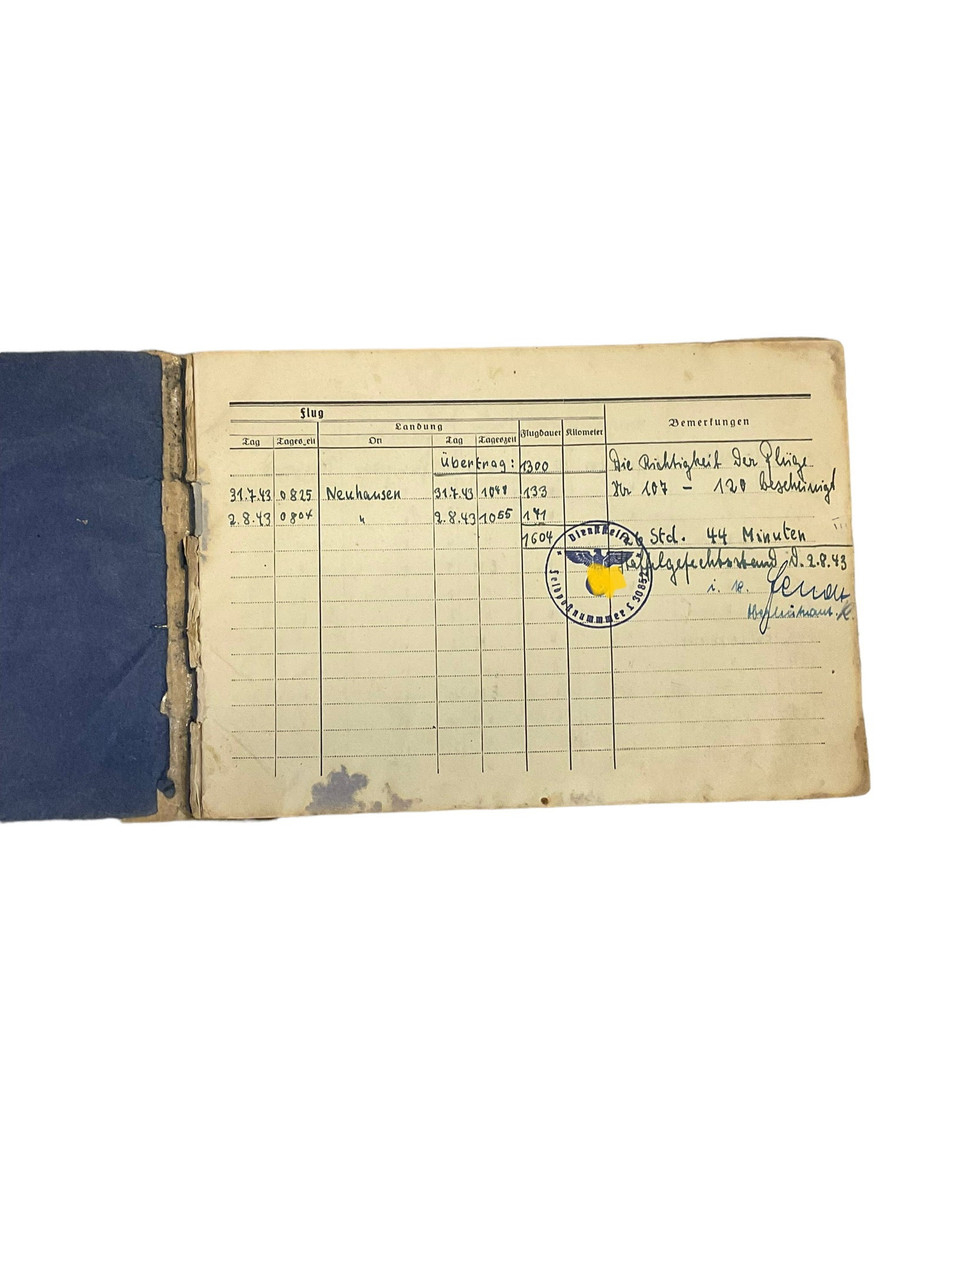 Flug
Landung
Bemerkungen
Tag Ort Tag Tageszeit Flugdauer Kilometer
Übertrag: 1300
Die Richtigkeit der Flüge
31.7.43 0825 Neuhausen 31.7.43 133
Nr 107 - 120 bescheinigt
2.8.43 0804 " 2.8.43 1055 171
1604
Std. 44 Minuten
d. 2.8.43
i. V.
Dienststelle
Feldpostnummer L 3085